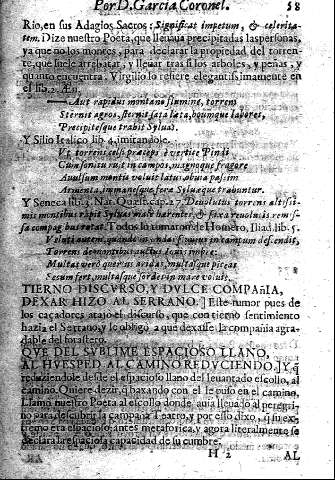 Por D. Garcia Coronel. 58
Rio, en sus Adagios Sacros: Significat impetum, & celerita-
tem. Dize nuestro Poeta, que lleuaua precipitadas las personas,
ya que no los montes, para declarar la propiedad del torren-
te, que suele arrebatar, y lleuar tras si los arboles, y peñas, y
quanto encuentra. Virgilio lo refiere elegantissimamente en
el lib. 2. Æn.
Aut rapidus montano flumine, torrens
Sternit agros, sternit sata læta, boumque labores,
Præcipitesque trahit Syluas.
Y Silio Italico lib. 4. imitandole.
Vt torrens celsi præceps è vertice Pindi
Cum sonitu ruit in campos, magnoque fragore
Auulsum montis voluit latus, obuia passim
Armenta, immanesque feræ Syluaque trahuntur.
Y Seneca lib. 3. Nat. Quæst. cap. 27. Deuolutus torrens altissi-
mis montibus rapit Syluas male hærentes, & saxa reuolutis remis-
sa compagibus rotat. Todos lo tomaron de Homero, Iliad. lib. 5.
Veluti autem, quando vndans fluuius in campum descendit,
Torrens de montibus auctus Iouis imbre:
Multas vero quercus aridas, multasque piceas
Secum fert, multasque sordes in mare voluit.
TIERNO DISCVRSO, Y DVLCE COMPAñIA,
DEXAR HIZO AL SERRANO.] Este rumor pues de
los caçadores atajo el discurso, que con tierno sentimiento
hazia el Serrano, y le obligò a que dexasse la compañia agra-
dable del forastero.
QVE DEL SVBLIME ESPACIOSO LLANO,
AL HVESPED AL CAMINO REDVCIENDO.] Y q̃
reduziendole desde el espacioso llano del leuantado escollo, al
camino. Quiere dezir, q̃ baxando con el se puso en el camino.
Llamò nuestro Poeta al escollo donde auia lleuado al peregri-
no para descubrir la campaña Teatro, y por esso dixo, q̃ su ex-
tremo era espacioso, antes metaforica, y agora literalmente se
declara la espaciosa capacidad de su cumbre.
H 2 AL